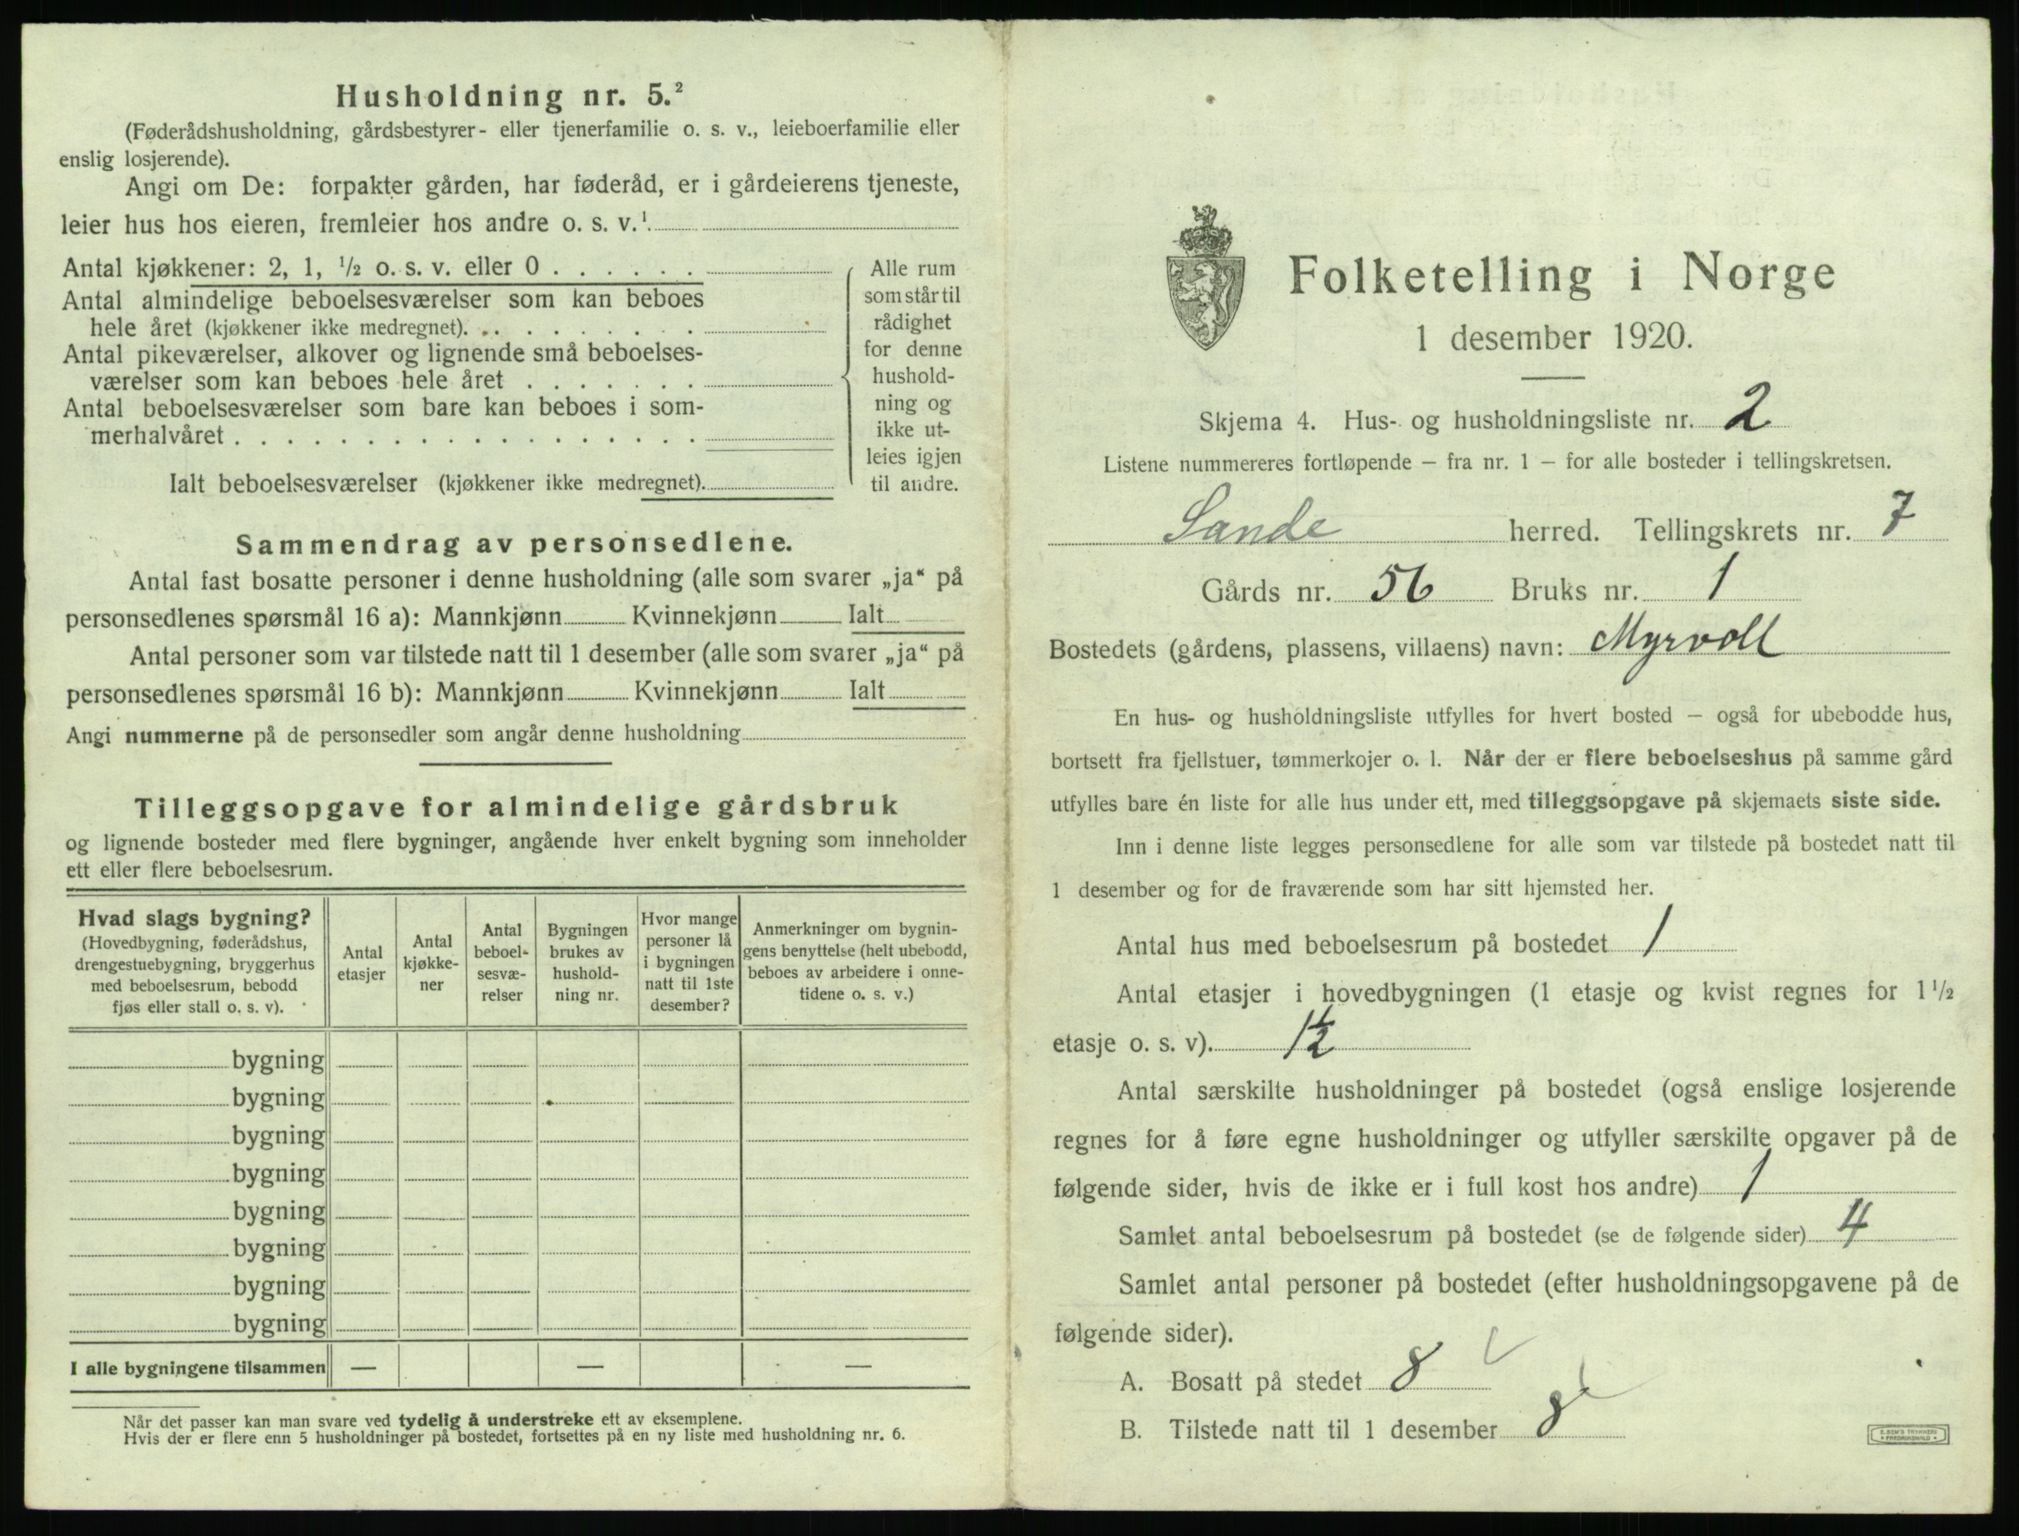 Husholdning nr. 5.²
(Føderådshusholdning, gårdsbestyrer- eller tjenerfamilie o. s. v., leieboerfamilie eller
enslig losjerende).
Angi om De: forpakter gården, har føderåd, er i gårdeierens tjeneste,
leier hus hos eieren, fremleier hos andre o. s. v.¹
Antal kjøkkener: 2, 1, ½ o. s. v. eller 0 . . . . . .
Antal almindelige beboelsesværelser som kan beboes
hele året (kjøkkener ikke medregnet). . . . . . . . .
Antal pikeværelser, alkover og lignende små beboelses-
værelser som kan beboes hele året . . . . . . .
Antal beboelsesværelser som bare kan beboes i som-
merhalvåret . . . . . . . . . . . . . . . . . .
Ialt beboelsesværelser (kjøkkener ikke medregnet).
Alle rum
som står til
rådighet
for denne
hushold-
ning og
ikke ut-
leies igjen
til andre.
Sammendrag av personsedlene.
Antal fast bosatte personer i denne husholdning (alle som svarer „ja“ på
personsedlenes spørsmål 16 a): Mannkjønn Kvinnekjønn Ialt
Antal personer som var tilstede natt til 1 desember (alle som svarer „ja“ på
personsedlenes spørsmål 16 b): Mannkjønn Kvinnekjønn Ialt
Angi nummerne på de personsedler som angår denne husholdning
Tilleggsopgave for almindelige gårdsbruk
og lignende bosteder med flere bygninger, angående hver enkelt bygning som inneholder
ett eller flere beboelsesrum.
Hvad slags bygning?
(Hovedbygning, føderådshus,
drengestuebygning, bryggerhus
med beboelsesrum, bebodd
fjøs eller stall o. s. v).
Antal
etasjer
Antal
kjøkke-
ner
Antal
beboel-
sesvæ-
relser
Bygningen
brukes av
hushold-
ning nr.
Hvor mange
personer lå
i bygningen
natt til 1ste
desember?
Anmerkninger om bygnin-
gens benyttelse (helt ubebodd,
beboes av arbeidere i onne-
tidene o. s. v.)
bygning
bygning
bygning
bygning
bygning
bygning
bygning
bygning
I alle bygningene tilsammen — — —
Når det passer kan man svare ved tydelig å understreke ett av eksemplene.
Hvis der er flere enn 5 husholdninger på bostedet, fortsettes på en ny liste med husholdning nr. 6.
Folketelling i Norge
1 desember 1920.
Skjema 4. Hus- og husholdningsliste nr. 2
Listene nummereres fortløpende – fra nr. 1 – for alle bosteder i tellingskretsen.
Sande herred. Tellingskrets nr. 7
Gårds nr. 56 Bruks nr. 1
Bostedets (gårdens, plassens, villaens) navn: Myrvoll
En hus- og husholdningsliste utfylles for hvert bosted – også for ubebodde hus,
bortsett fra fjellstuer, tømmerkojer o. l. Når der er flere beboelseshus på samme gård
utfylles bare én liste for alle hus under ett, med tilleggsopgave på skjemaets siste side.
Inn i denne liste legges personsedlene for alle som var tilstede på bostedet natt til
1 desember og for de fraværende som har sitt hjemsted her.
Antal hus med beboelsesrum på bostedet 1
Antal etasjer i hovedbygningen (1 etasje og kvist regnes for 1½
etasje o. s. v). 1½
Antal særskilte husholdninger på bostedet (også enslige losjerende
regnes for å føre egne husholdninger og utfyller særskilte opgaver på de
følgende sider, hvis de ikke er i full kost hos andre) 1
Samlet antal beboelsesrum på bostedet (se de følgende sider) 4
Samlet antal personer på bostedet (efter husholdningsopgavene på de
følgende sider).
A. Bosatt på stedet 8
B. Tilstede natt til 1 desember 8